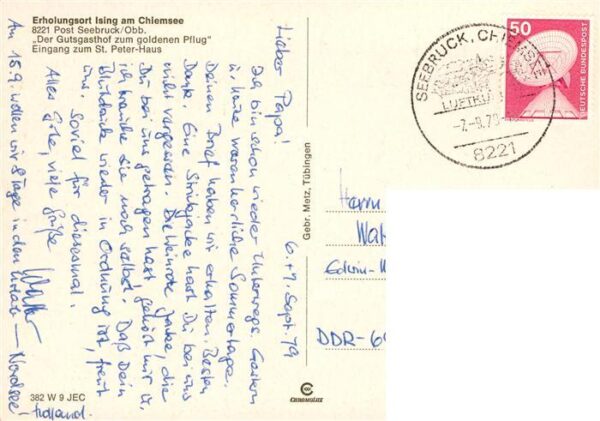 Erholungsort Ising am Chiemsee
8221 Post Seebruck/Obb.
„Der Gutsgasthof zum goldenen Pflug"
Eingang zum St. Peter-Haus
6.+7. Sept. 79
Lieber Papa!
Ich bin schon wieder Unterwegs. Gestern
u. heute waren herrliche Sommertage.
Deinen Brief haben wir erhalten. Besten
Dank. Eine Strickjacke hast Du bei uns
nicht vergessen. Die Weinrote Jacke, die
Du bei uns getragen hast, gehört mir u.
ich brauche sie noch selbst. Daß Dein
Blutdruck wieder in Ordnung ist, freut
uns. Soviel für diesesmal.
Alles Gute, viele Grüße
Walter
Am 15.9. wollen wir 8 Tage in den Urlaub – Nordsee-
Holland.
382 W 9 JEC
Gebr. Metz, Tübingen
CHROMOLUX
SEEBRUCK, CHIEMSEE
LUFTKU
-7.-9.79
8221
50
DEUTSCHE BUNDESPOST
Herrn
Wal
Edwin-H
DDR-69